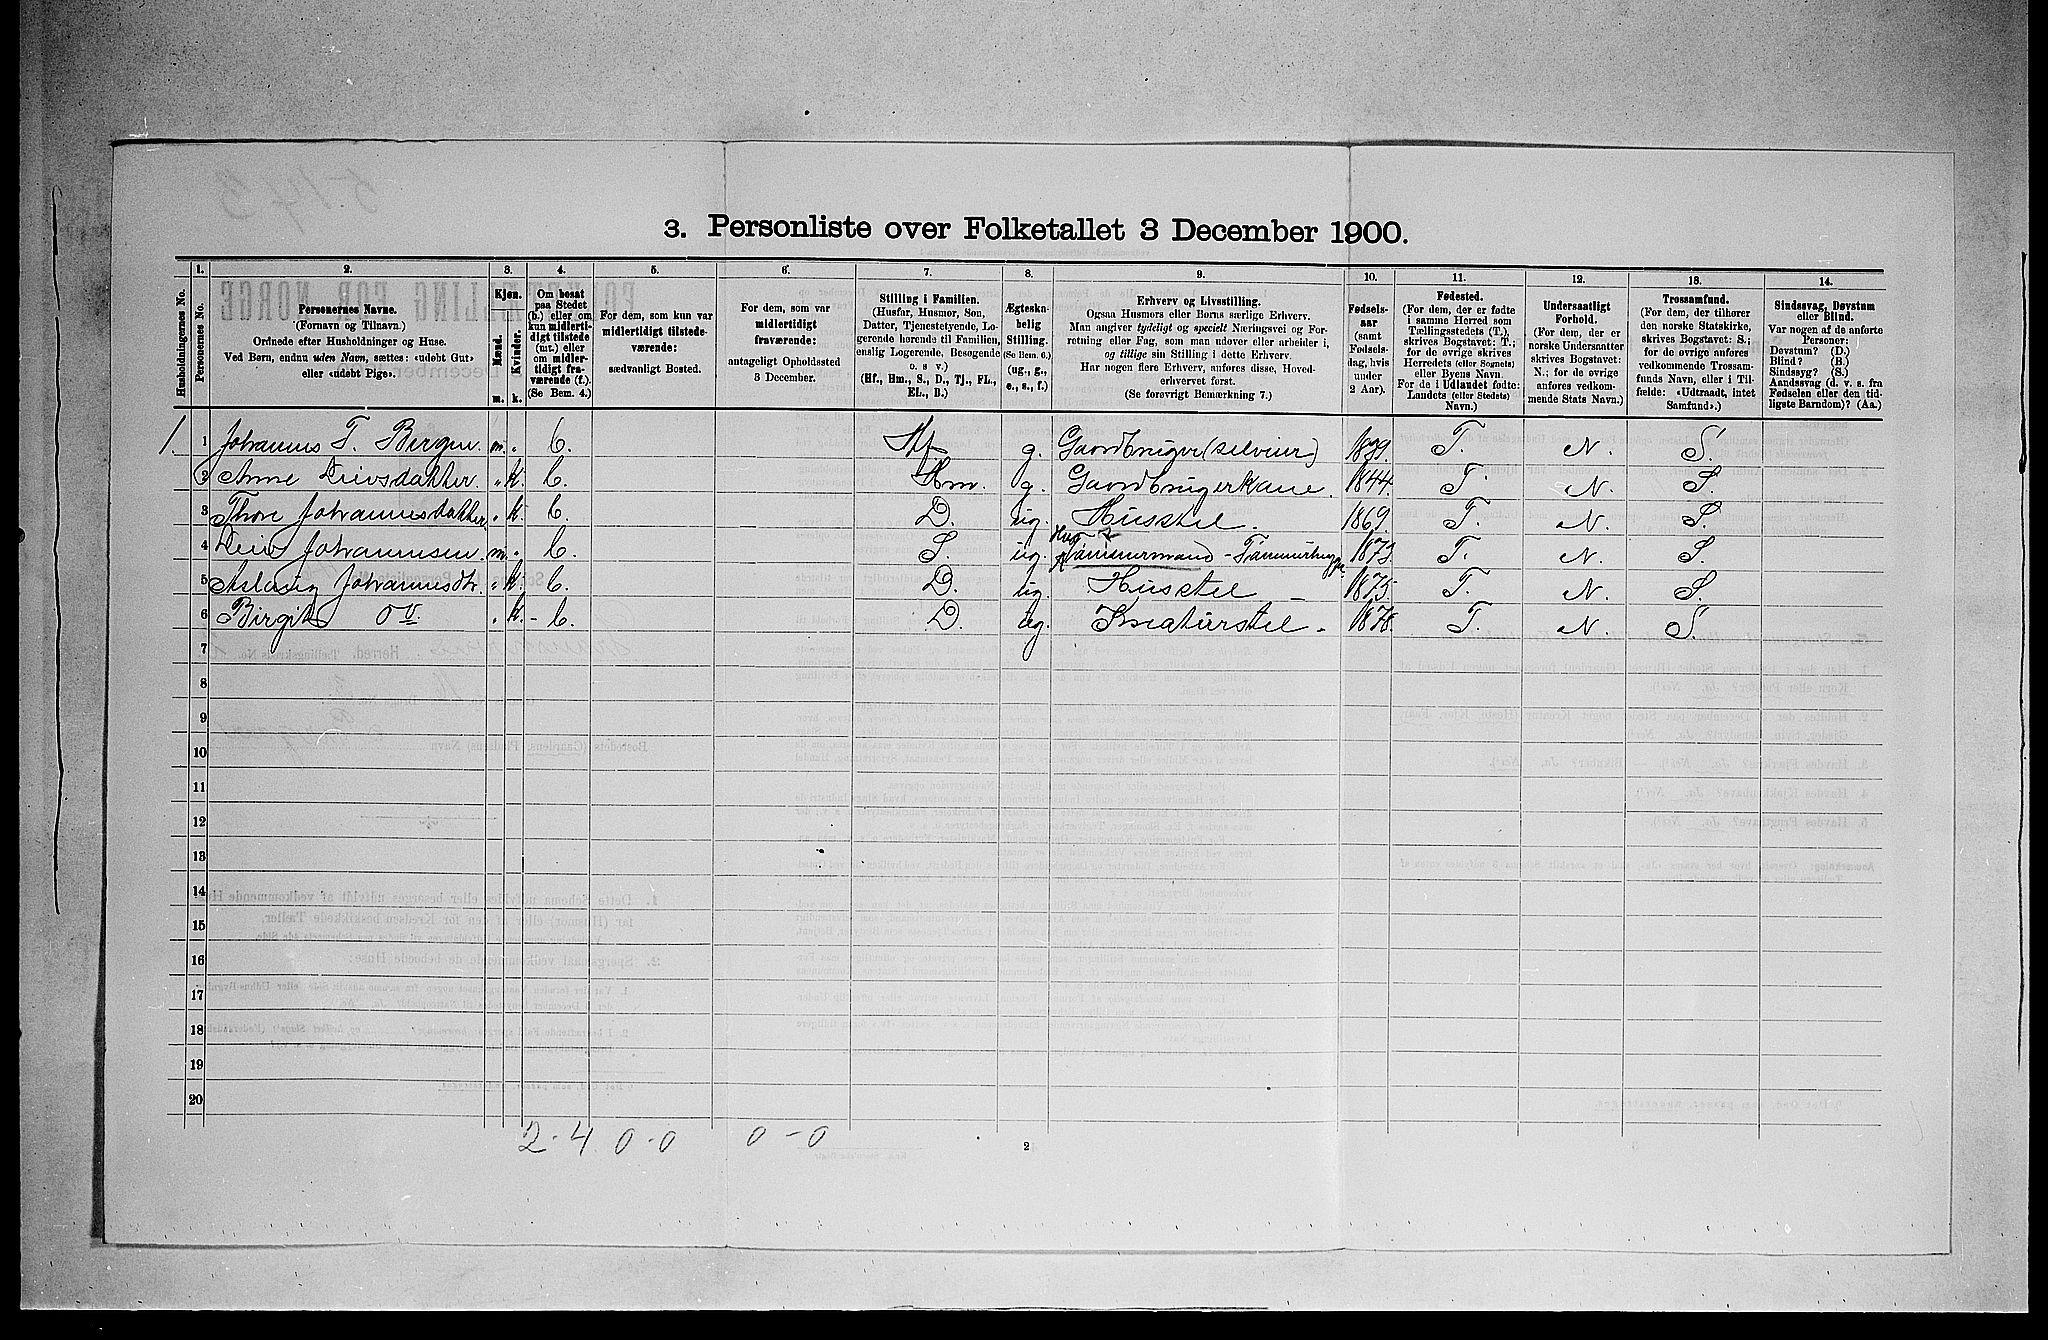 3. Personliste over Folketallet 3 December 1900.
1. 2. 3. 4. 5. 6. 7. 8. 9. 10. 11. 12. 13. 14.
Husholdningernes No.
Personernes No.
Personernes Navne.
(Fornavn og Tilnavn.)
Ordnede efter Husholdninger og Huse.
Ved Børn, endnu uden Navn, sættes: «udøbt Gut»
eller «udøbt Pige».
Kjøn.
Mænd.
Kvinder.
m. k.
Om bosat
paa Stedet
(b.) eller om
kun midlerti-
digt tilstede
(mt.) eller
om midler-
tidigt fra-
værende (f.).
(Se Bem. 4.)
For dem, som kun var
midlertidigt tilstede-
værende:
sædvanligt Bosted.
For dem, som var
midlertidigt
fraværende:
antageligt Opholdssted
3 December.
Stilling i Familien.
(Husfar, Husmor, Søn,
Datter, Tjenestetyende, Lo-
gerende hørende til Familien,
enslig Logerende, Besøgende
o. s v.)
(Hf., Hm., S., D., Tj., FL.,
EL., B.)
Ægteska-
belig
Stilling.
(Se Bem. 6.)
(ug., g.,
e., s., f.)
Erhverv og Livsstilling.
Ogsaa Husmors eller Børns særlige Erhverv.
Man angiver tydeligt og specielt Næringsvei og For-
retning eller Fag, som man udøver eller arbeider i,
og tillige sin Stilling i dette Erhverv.
Har nogen flere Erhverv, anføres disse, Hoved-
erhvervet først.
(Se forøvrigt Bemærkning 7.)
Fødsels-
aar
(samt
Fødsels-
dag, hvis
under
2 Aar).
Fødested.
(For dem, der er fødte
i samme Herred som
Tællingsstedets (T.),
skrives Bogstavet: T.;
for de øvrige skrives
Herredets (eller Sognets)
eller Byens Navn.
For de i Udlandet fødte:
Landets (eller Stedets)
Navn.)
Undersaatligt
Forhold.
(For dem, der er
norske Undersaatter
skrives Bogstavet:
N.; for de øvrige
anføres vedkom-
mende Stats Navn.)
Trossamfund.
(For dem, der tilhører
den norske Statskirke,
skrives Bogstavet: S.;
for de øvrige anføres
vedkommende Trossam-
funds Navn, eller i Til-
fælde: «Udtraadt, intet
Samfund».)
Sindssvag, Døvstum
eller Blind.
Var nogen af de anførte
Personer:
Døvstum? (D.)
Blind? (B.)
Sindssyg? (S.)
Aandssvag (d. v. s. fra
Fødselen eller den tid-
ligste Barndom)? (Aa.)
1. 1 Johannes T. Bergen. m. „ b. Hf g. Gaardbruger (selveier) T. N. S.
2 Anne Leivsdatter. „ k. b. Hm. g. Gaardbrugerkone. 1844. T. N. S.
3 Thone Johannesdatter. „ k. b. D. ug. Husstel. 1869. T. N. S.
4 Leiv Johannesen. m. „ b. S. ug. Tømmermand - Tømmerhugger. 1873. T. N. S.
5 Aslaug Johannesdtr. „ k. b. D. ug. Husstel 1875. T. N. S.
6 Birgit „ k. b. D. ug. Kreaturstel. 1878. T. N. S.
7
8
9
10
11
12
13
14
15
16
17
18
19
20
2-4 0-0 0-0
2